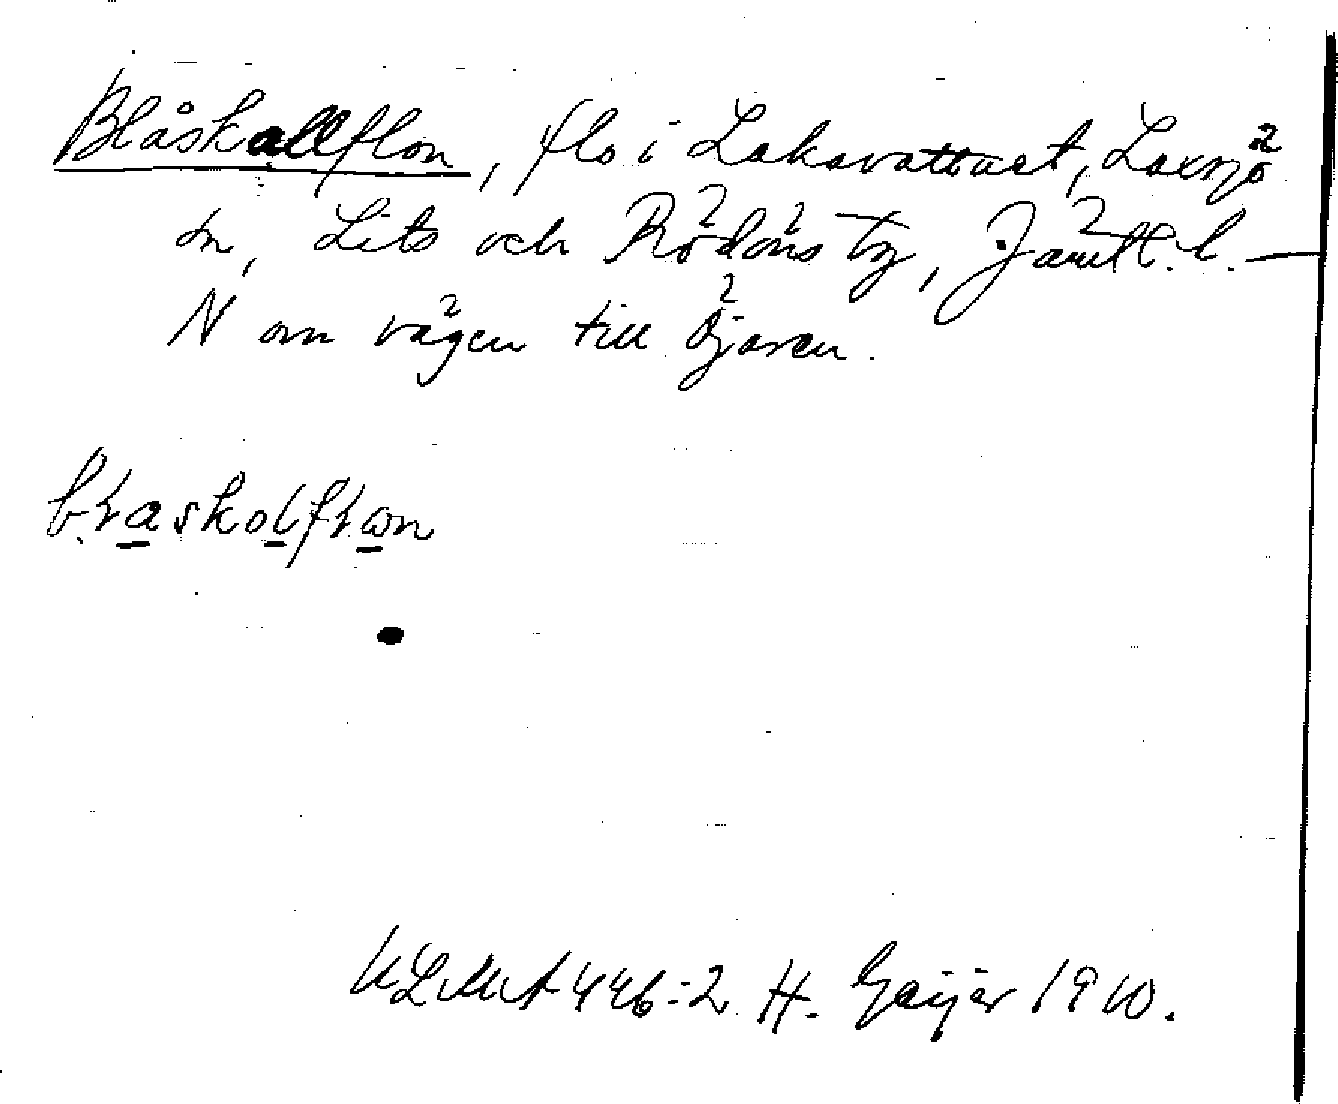 Blåskallflon, flo i Lakavattnet, Laxsjö
sn, Lits och Rödöns tg, Jämtl. l. —
N om vägen till Öjaren.
blaskolflon
ULMA 446:2 H. Geijer 1910.